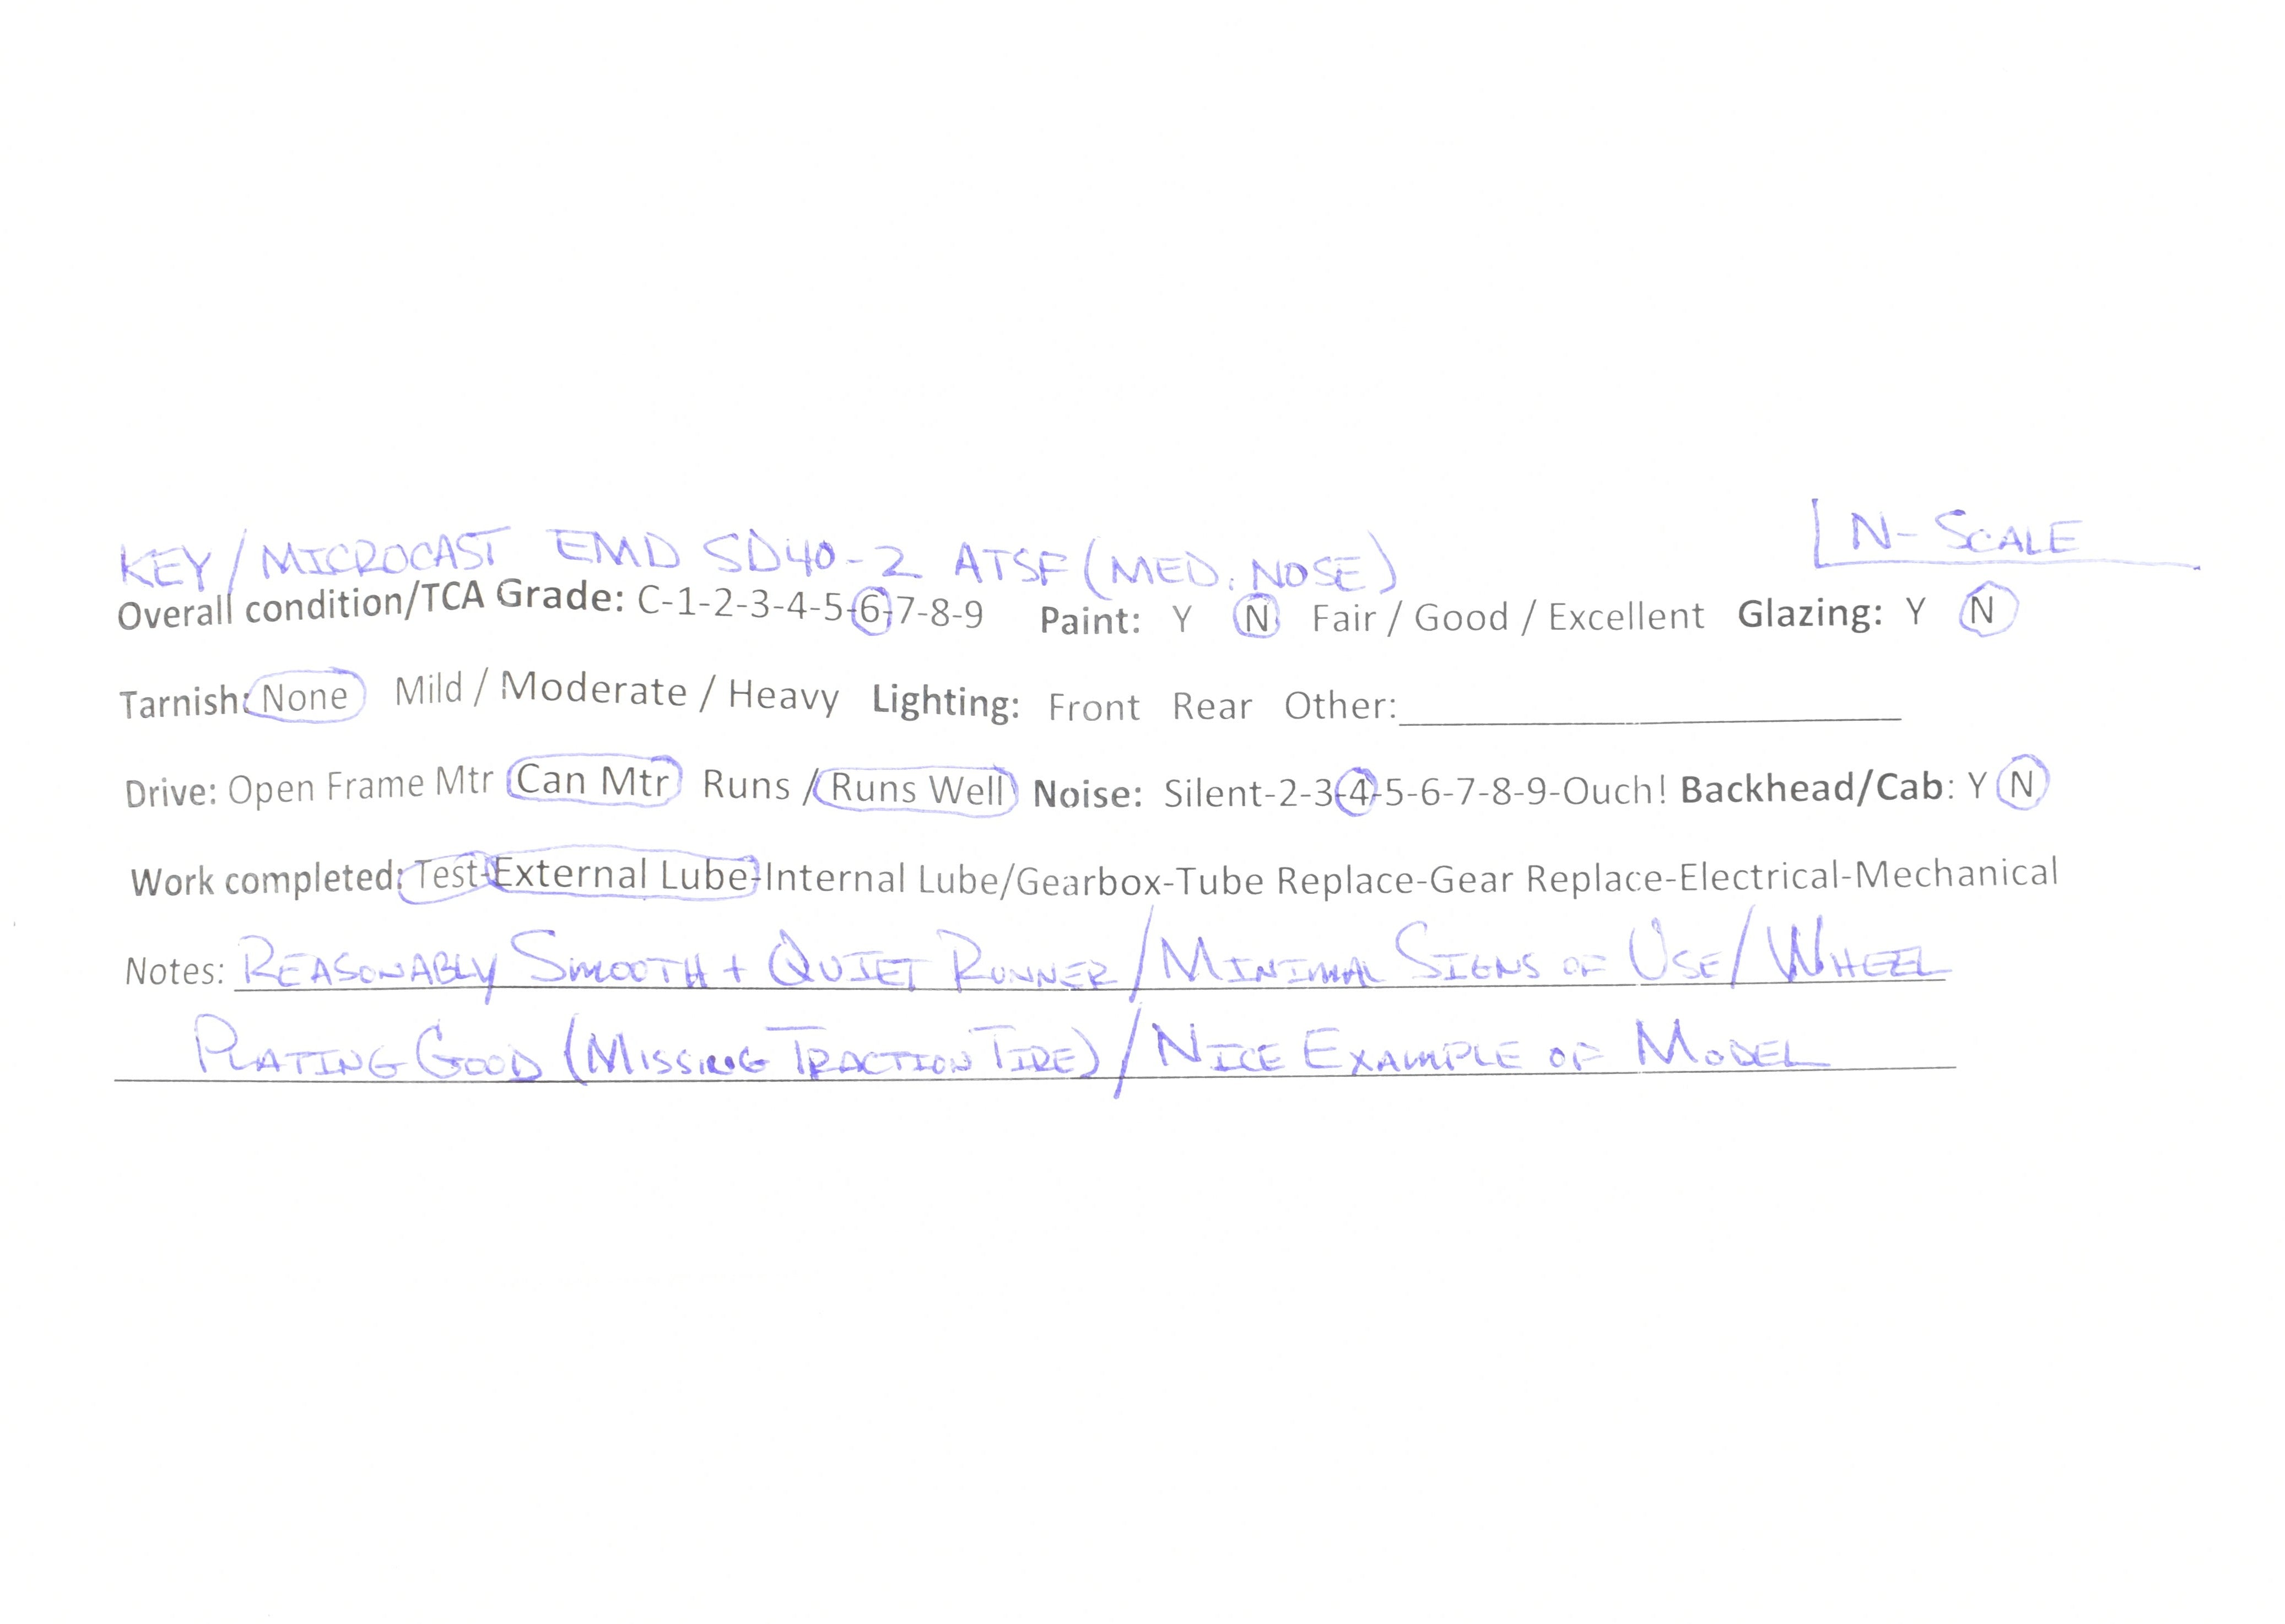 N-SCALE
KEY/MICROCAST EMD SD40-2 ATSF (MED. NOSE)
Overall condition/TCA Grade: C-1-2-3-4-5-6-7-8-9 Paint: Y N Fair / Good / Excellent Glazing: Y N
Tarnish: None Mild / Moderate / Heavy Lighting: Front Rear Other:
Drive: Open Frame Mtr Can Mtr Runs / Runs Well Noise: Silent-2-3-4-5-6-7-8-9-Ouch! Backhead/Cab: Y N
Work completed: Test-External Lube-Internal Lube/Gearbox-Tube Replace-Gear Replace-Electrical-Mechanical
Notes: REASONABLY SMOOTH + QUIET RUNNER / MINIMAL SIGNS OF USE / WHEEL
PLATING GOOD (MISSING TRACTION TIRE) / NICE EXAMPLE OF MODEL